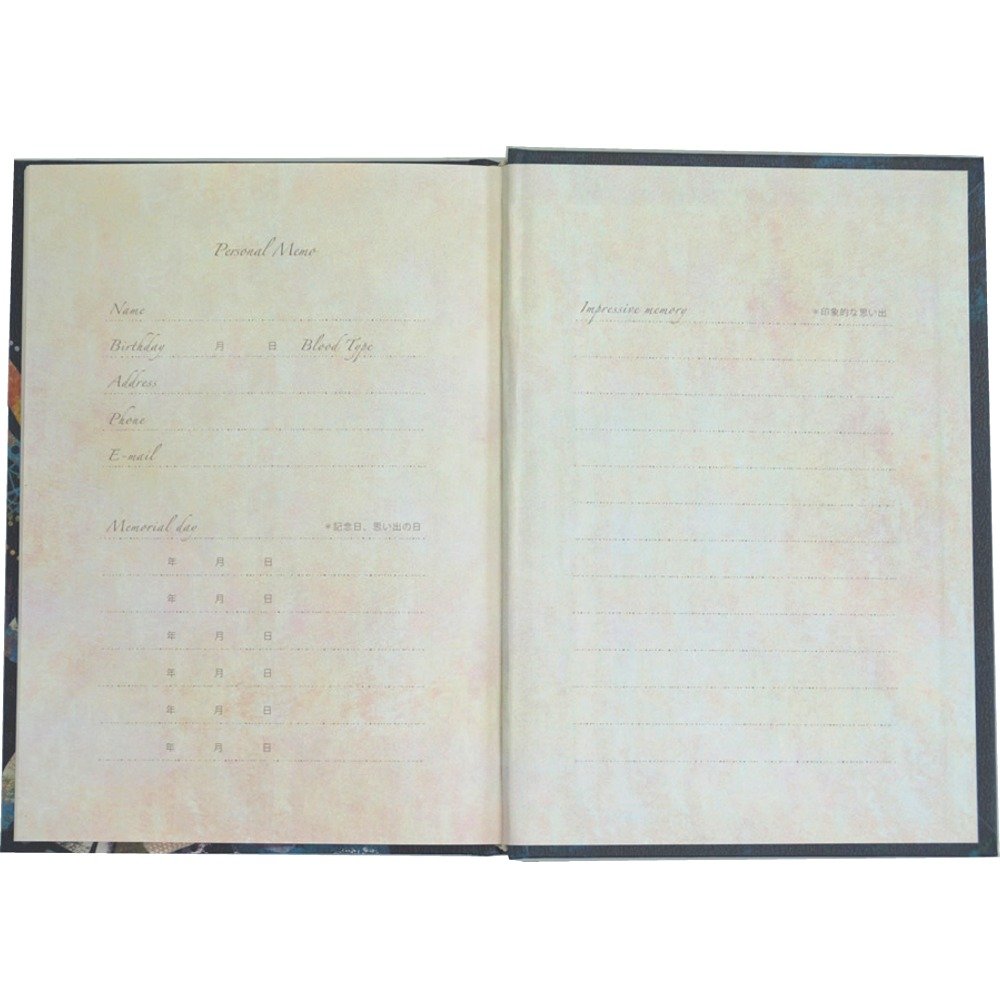 Personal Memo
Name
Birthday 月 日 Blood Type
Address
Phone
E-mail
Memorial day *記念日、思い出の日
年 月 日
年 月 日
年 月 日
年 月 日
年 月 日
年 月 日
Impressive memory *印象的な思い出